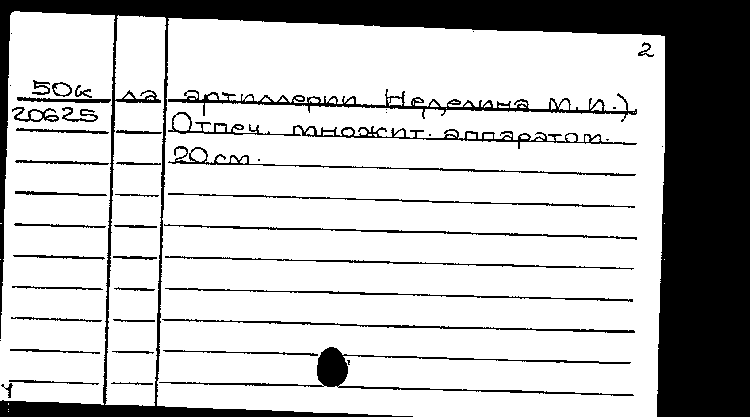 2
50к ла артиллерии Неделина М.И.)
20625 Отпеч. множит. аппаратом.
20 см.